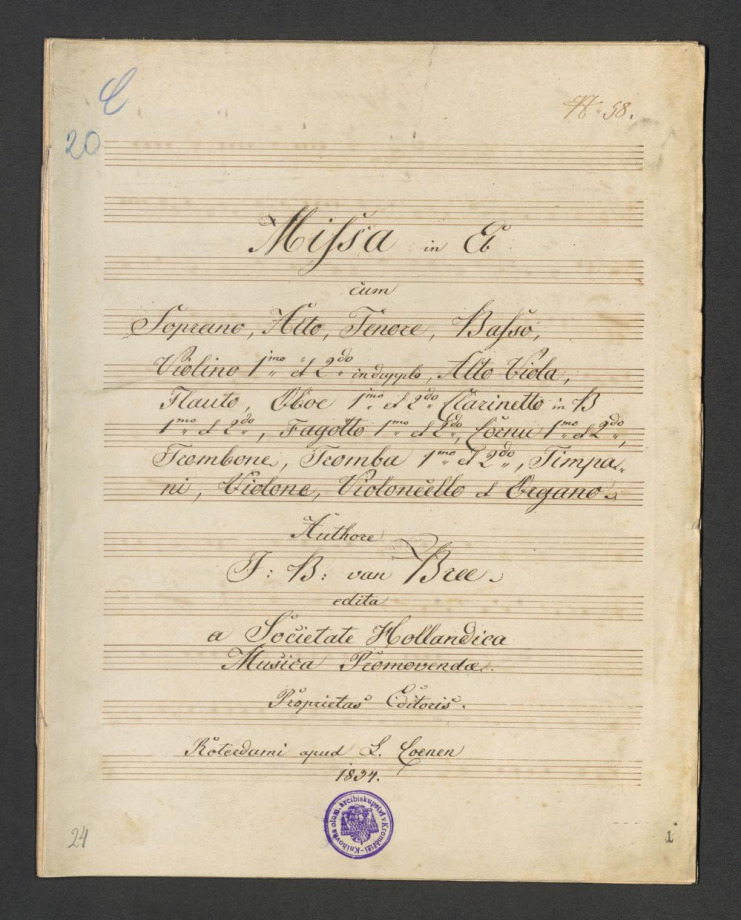 C
20
№ 58.
Missa in Eb
cum
Soprano, Alto, Tenore, Basso,
Violino 1mo et 2do in duplo, Alto Viola,
Flauto, Oboe 1mo et 2do Clarinetto in B
1mo et 2do, Fagotto 1mo et 2do, Cornu 1mo et 2do,
Trombone, Tromba 1mo et 2do, Timpa-
ni, Violone, Violoncello et Organo.
Authore
J: B: van Bree.
edita
a Societate Hollandica
Musica Promovendæ.
Proprietas Editoris.
Roterdami apud L. Coenen
1834.
Knihovna olom. arcibiskupství v Kroměříži
24
1